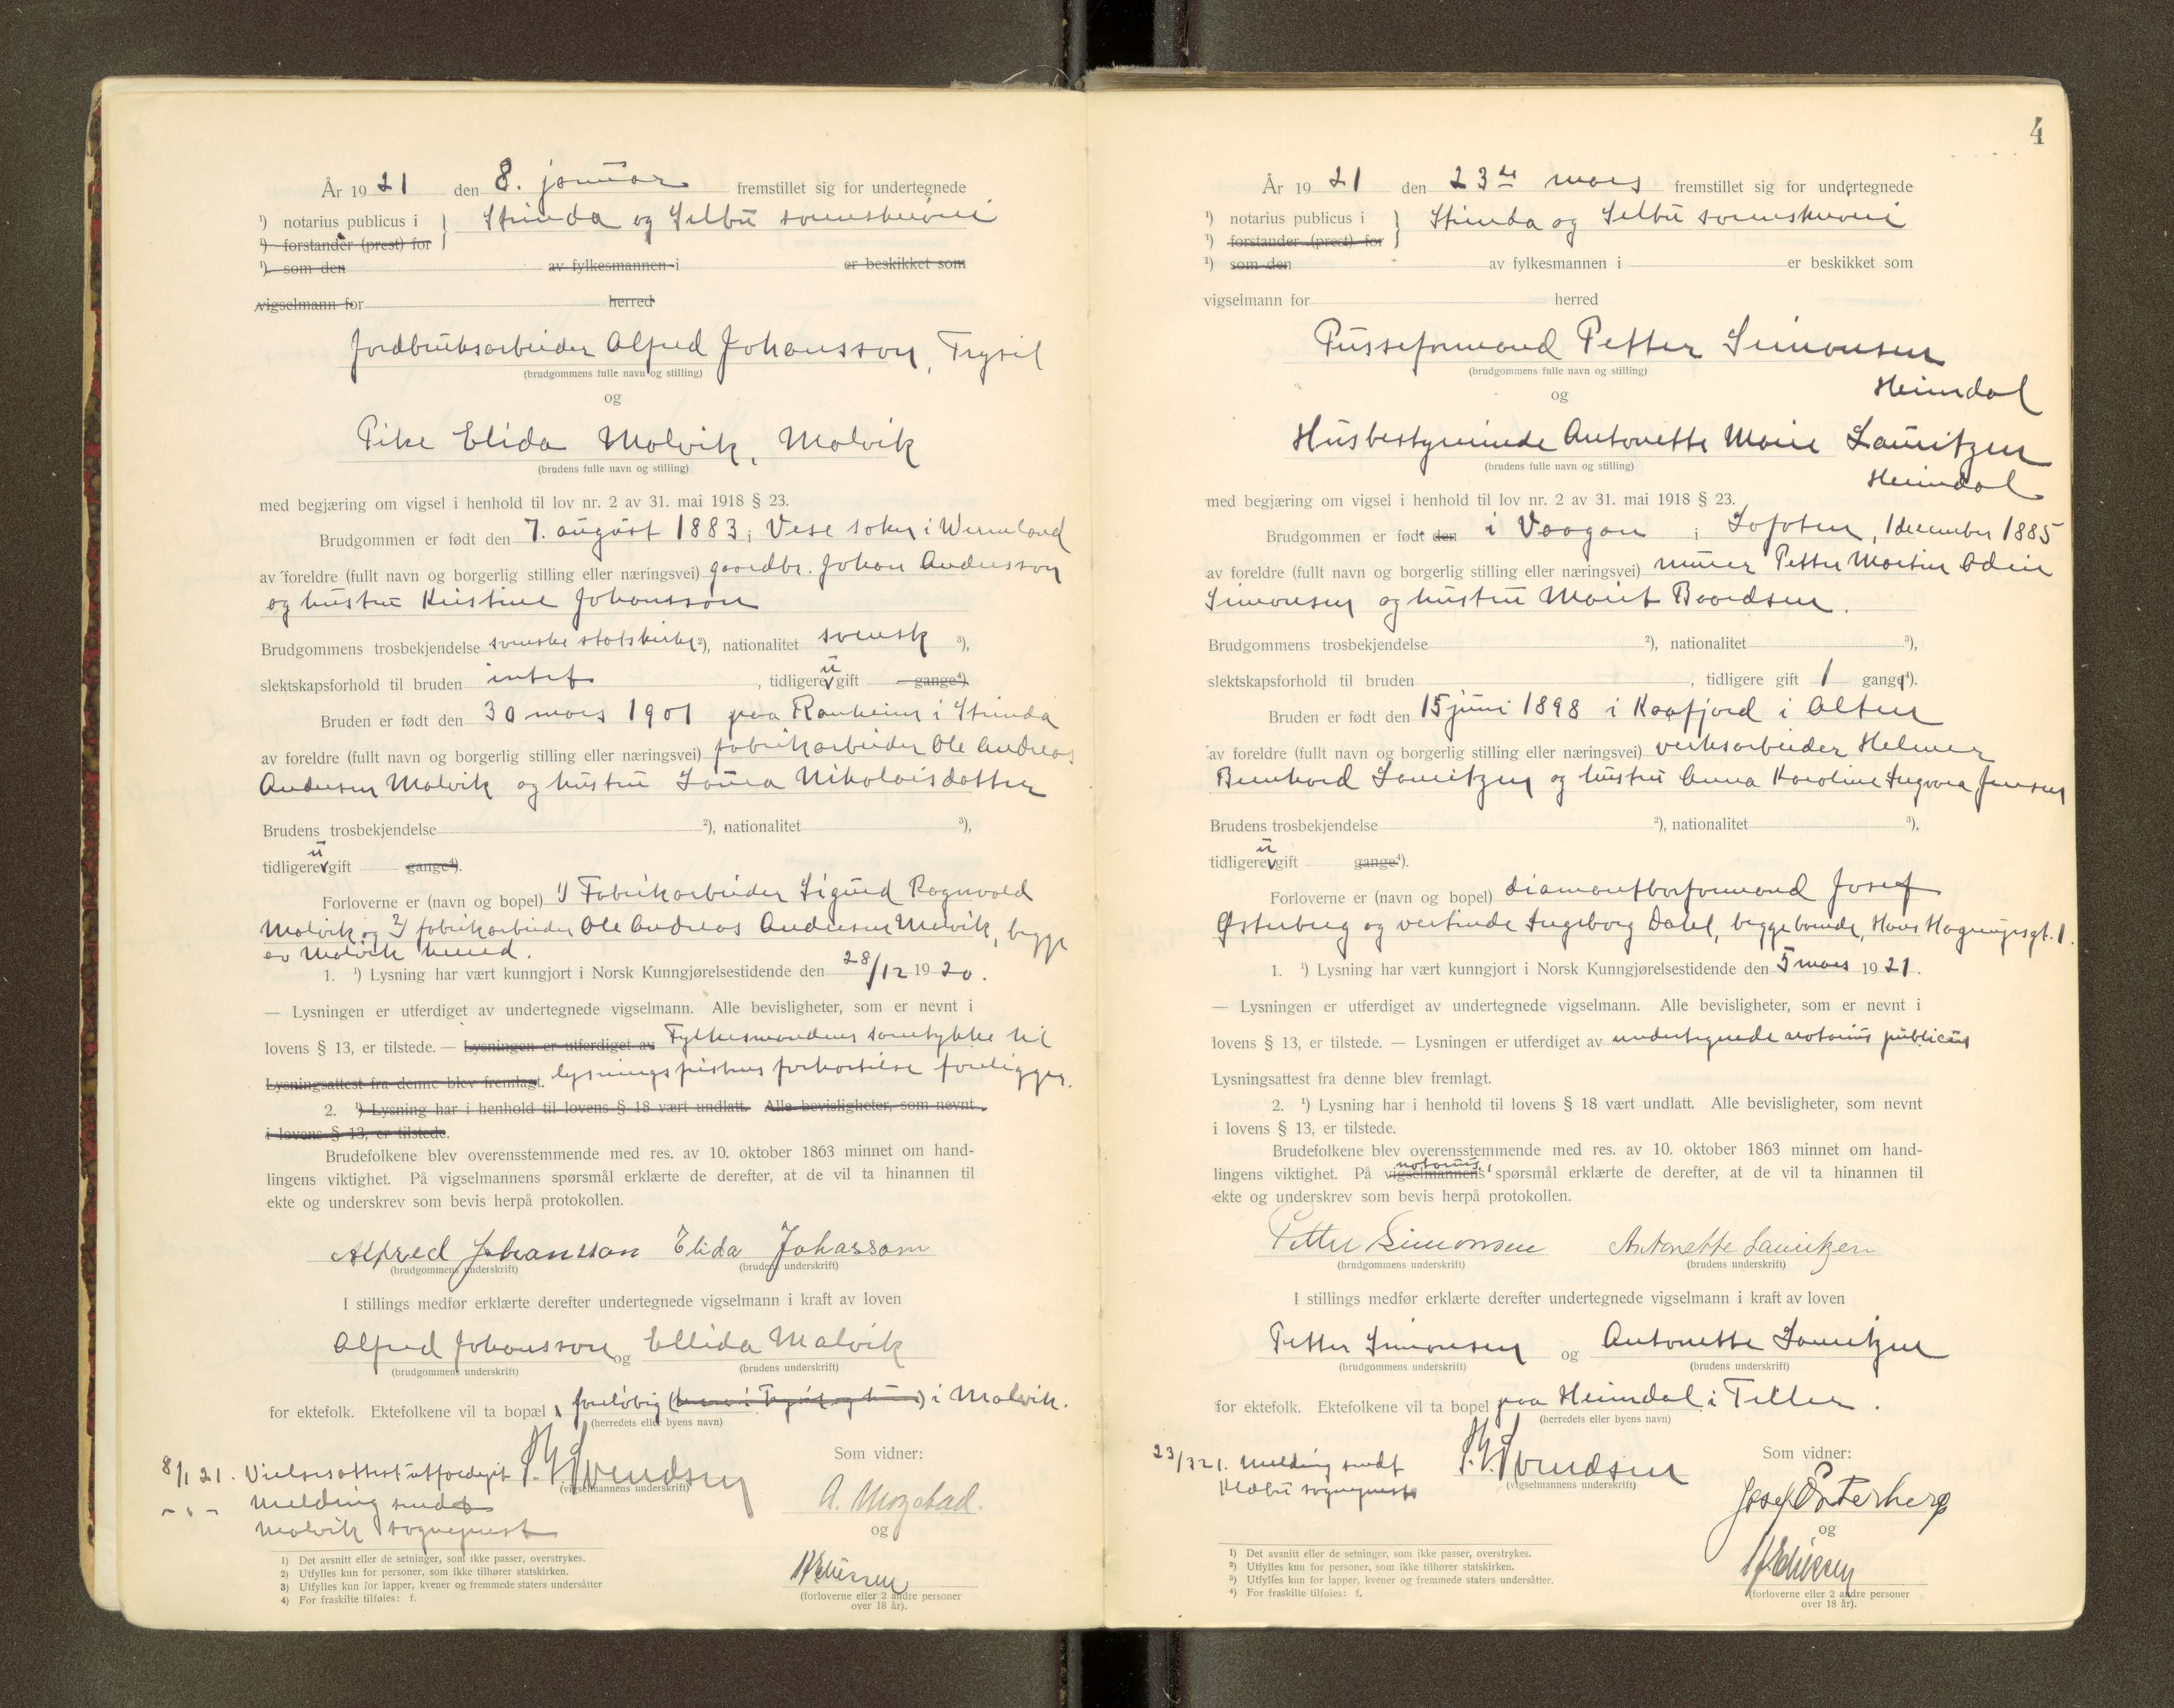 År 1921 den 8. januar fremstillet sig for undertegnede
¹) notarius publicus i } Strinda og Selbu sorenskriveri
¹) forstander (prest) for
¹) som den av fylkesmannen i er beskikket som
vigselmann for herred
Jordbruksarbeider Alfred Johansson, Trysil
(brudgommens fulle navn og stilling)
og
Pike Elida Malvik, Malvik
(brudens fulle navn og stilling)
med begjæring om vigsel i henhold til lov nr. 2 av 31. mai 1918 § 23.
Brudgommen er født den 7. august 1883 i Vese soken i Wermland
av foreldre (fullt navn og borgerlig stilling eller næringsvei) gaardbr. Johan Andersson
og hustru Kristine Johansson
Brudgommens trosbekjendelse svenske statskirke ²), nationalitet svensk ³),
slektskapsforhold til bruden intet, tidligere u gift gange⁴).
Bruden er født den 30 mars 1901 paa Ranheim i Strinda
av foreldre (fullt navn og borgerlig stilling eller næringsvei) fabrikarbeider Ole Andreas
Andersen Malvik og hustru Laura Nikolaisdatter
Brudens trosbekjendelse ²), nationalitet ³),
tidligere u gift gange⁴).
Forloverne er (navn og bopel) 1) Fabrikarbeider Sigurd Ragnvald
Malvik og 2) fabrikarbeider Ole Andreas Andersen Malvik, begge
av Malvik herred.
1. ¹) Lysning har vært kunngjort i Norsk Kunngjørelsestidende den 28/12 1920.
— Lysningen er utferdiget av undertegnede vigselmann. Alle bevisligheter, som er nevnt i
lovens § 13, er tilstede. — Lysningen er utferdiget av Fylkesmandens samtykke til
Lysningsattest fra denne blev fremlagt. lysningsfristens forkortelse foreligger.
2. ¹) Lysning har i henhold til lovens § 18 vært undlatt. Alle bevisligheter, som nevnt
i lovens § 13, er tilstede.
Brudefolkene blev overensstemmende med res. av 10. oktober 1863 minnet om hand-
lingens viktighet. På vigselmannens spørsmål erklærte de derefter, at de vil ta hinannen til
ekte og underskrev som bevis herpå protokollen.
Alfred Johansson Elida Johassom
(brudgommens underskrift) (brudens underskrift)
I stillings medfør erklærte derefter undertegnede vigselmann i kraft av loven
Alfred Johansson og Ellida Malvik
(brudgommens underskrift) (brudens underskrift)
for ektefolk. Ektefolkene vil ta bopæl foreløbig i Malvik.
(herredets eller byens navn)
8/1 21. Vielsesattest utfærdiget
(vigselmannens underskrift)
Som vidner:
- " - Melding sendt
Malvik sogneprest
A. Mogstad.
og
(forloverne eller 2 andre personer
over 18 år).
1) Det avsnitt eller de setninger, som ikke passer, overstrykes.
2) Utfylles kun for personer, som ikke tilhører statskirken.
3) Utfylles kun for lapper, kvener og fremmede staters undersåtter
4) For fraskilte tilføies: f.
4
År 1921 den 23de mars fremstillet sig for undertegnede
¹) notarius publicus i } Strinda og Selbu sorenskriveri
¹) forstander (prest) for
¹) som den av fylkesmannen i er beskikket som
vigselmann for herred
Pusseformand Petter Simonsen
(brudgommens fulle navn og stilling)
Heimdal
og
Husbestyrerinde Antonette Marie Lauritzen
(brudens fulle navn og stilling)
Heimdal
med begjæring om vigsel i henhold til lov nr. 2 av 31. mai 1918 § 23.
Brudgommen er født den i Vaagan i Lofoten, 1 december 1885
av foreldre (fullt navn og borgerlig stilling eller næringsvei) murer Petter Martin Odin
Simonsen og hustru Marit Baardsen.
Brudgommens trosbekjendelse ²), nationalitet ³),
slektskapsforhold til bruden , tidligere gift 1 gang⁴).
Bruden er født den 15 juni 1898 i Kaafjord i Alten
av foreldre (fullt navn og borgerlig stilling eller næringsvei) verksarbeider Helmer
Bernhard Lauritzen og hustru Anna Karoline Ingvara Jensen
Brudens trosbekjendelse ²), nationalitet ³),
tidligere u gift gange⁴).
Forloverne er (navn og bopel) diamantborformand Josef
Østerberg og vertinde Ingeborg Dahl, begge boende, Hans Hagerupsgt. 1.
1. ¹) Lysning har vært kunngjort i Norsk Kunngjørelsestidende den 5 mars 1921.
— Lysningen er utferdiget av undertegnede vigselmann. Alle bevisligheter, som er nevnt i
lovens § 13, er tilstede. — Lysningen er utferdiget av undertegnede notarius publicus
Lysningsattest fra denne blev fremlagt.
2. ¹) Lysning har i henhold til lovens § 18 vært undlatt. Alle bevisligheter, som nevnt
i lovens § 13, er tilstede.
Brudefolkene blev overensstemmende med res. av 10. oktober 1863 minnet om hand-
lingens viktighet. På vigselmannens notarius' spørsmål erklærte de derefter, at de vil ta hinannen til
ekte og underskrev som bevis herpå protokollen.
Petter Simonsen Antonette Lauritzen
(brudgommens underskrift) (brudens underskrift)
I stillings medfør erklærte derefter undertegnede vigselmann i kraft av loven
Petter Simonsen og Antonette Lauritzen
(brudgommens underskrift) (brudens underskrift)
for ektefolk. Ektefolkene vil ta bopel paa Heimdal i Tiller.
(herredets eller byens navn)
23/3 21. Melding sendt
Klæbu sogneprest
(vigselmannens underskrift)
Som vidner:
Josef Österberg
og
(forloverne eller 2 andre personer
over 18 år).
1) Det avsnitt eller de setninger, som ikke passer, overstrykes.
2) Utfylles kun for personer, som ikke tilhører statskirken.
3) Utfylles kun for lapper, kvener og fremmede staters undersåtter.
4) For fraskilte tilføies: f.